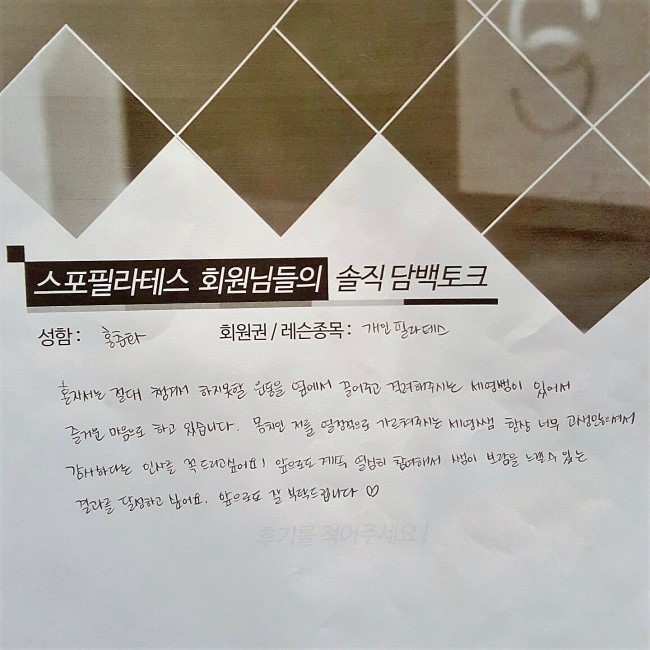 스포필라테스 회원님들의 솔직 담백토크
성함 : 홍춘락 회원권 / 레슨종목 : 개인필라테스
혼자서는 절대 챙겨서 하지못할 운동을 옆에서 끌어주고 격려해주시는 세영쌤이 있어서
즐거운 마음으로 하고 있습니다. 몸치인 저를 열정적으로 가르쳐주시는 세영쌤 항상 너무 고생많으셔서
감사하다는 인사를 꼭 드리고싶어요! 앞으로도 계속 열심히 참여해서 쌤이 보람을 느낄 수 있는
결과를 달성하고 싶어요. 앞으로도 잘 부탁드립니다 ♡
후기를 적어주세요!